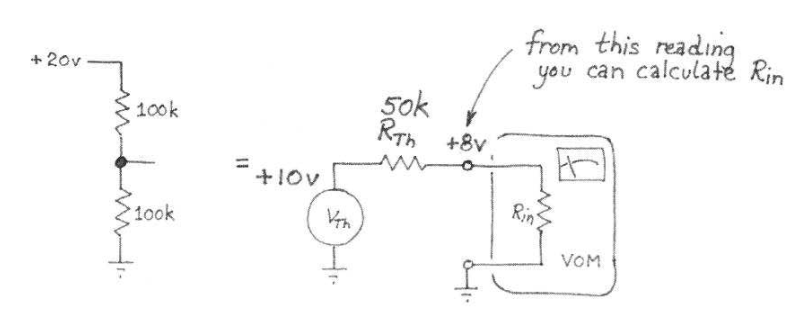 +20v
100k
100k
=
+10v
V_Th
50k
R_Th
+8v
from this reading
you can calculate R_in
R_in
VOM